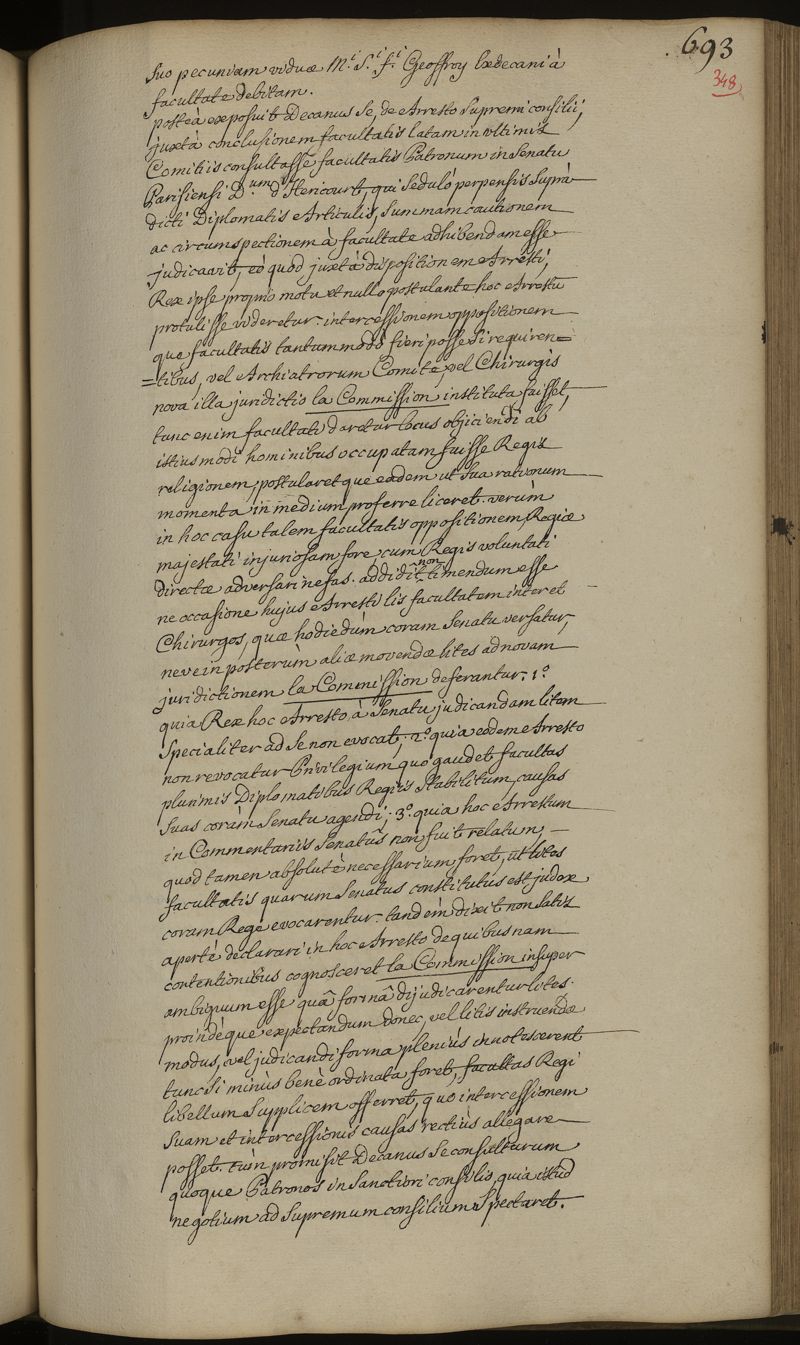 693
348
suo pecuniam viduæ M.i S.i f.i Geoffroy Exdecani à
facultate debitam.
posteà exposuit Decanus se, de Arresto supremi consilii,
juxtà conclusionem facultatis latam in ultimis
Comitiis consultasse facultatis Patronum in Senatu
Parisiensi D.um d'Hericourt, qui sedulò perpensis supra
dicti Diplomatis Articulis, summam cautionem
ac circumspectionem à facultate adhibendam esse
judicavit, eò quod juxtà dispositionem Arresti,
Rex ipse proprio motu et nullo postulante hoc Arrestū
protulisse videretur. intercessionem oppositionem
que facultatis tantummodò fieri posse si requiren=
=tibus, vel Archiatrorum Comite, vel Chirurgis
nova illa juridictio la Commission instituta fuisset,
tunc enim facultati daretur locus objiciendi ab
istius modi hominibus occupatam fuisse Regis
religionem, postularetque eadem ut sua rationum
momenta in medium proferre liceret. verùm
in hoc casu talem facultatis oppositionem Regiæ
majestati injuriosam fore, cum Regis voluntati
directæ adversari nefas. addidit non timendum esse
ne occasione hujus Arresti lis facultatem inter et
Chirurgos, quæ hodiedùm coram Senatu versatur,
neve in posterùm aliæ movendæ lites ad novam
juridictionem la Commission deferantur. 1.o
quia Rex hoc Arresto à Senatu judicandam litem
specialiter ad se non evocat, 2.o quia eodem Arresto
non revocatur Privilegium quo gaudet facultas
plurimis Diplomatibus Regiis stabilitum, causas
suas coràm Senatu agendi; 3.o quia hoc Arrestum
in Commentariis Senatûs non fuit relatum,
quod tamen absolutè necessarium foret, ut lites
facultatis quarum Senatus constitutus est judex
coram Rege evocarentur. tandem dixit non satis
apertè declarari in hoc Arresto de quibusnam
contentionibus cognosceret la Commission insuper
ambiguum esse quâ formâ dijudicarentur lites.
proindeque expectandum donec, vel litis instruendæ
modus, vel judicandi forma pleniùs innotescerent
tunc si minùs benè ordinata foret, facultas Regi
libellum supplicem offerret, quo intercessionem
suam et intercessionis causas rectiùs allegare
posset. tum promisit Decanus se consulturum
quoque Patronos in Sanctiori consilio, quia istud
negotium ad supremum consilium spectaret.